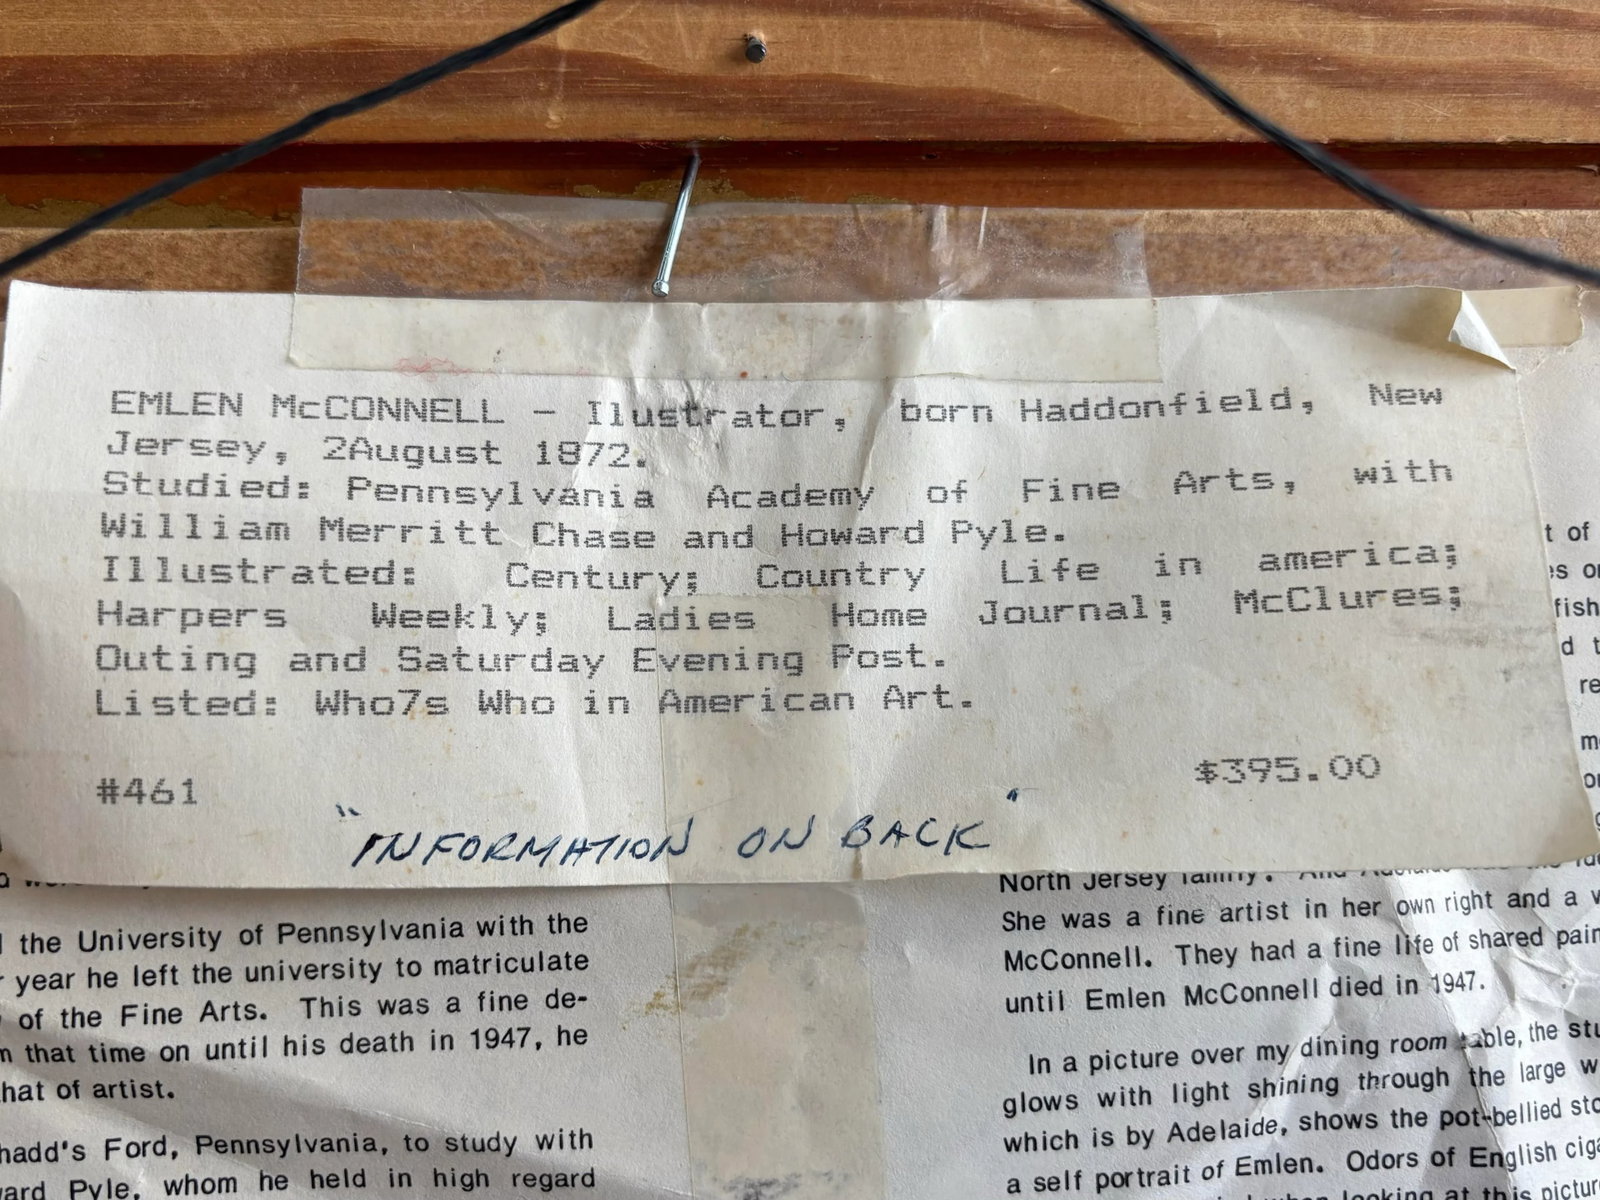 EMLEN McCONNELL - Ilustrator, born Haddonfield, New
Jersey, 2August 1872.
Studied: Pennsylvania Academy of Fine Arts, with
William Merritt Chase and Howard Pyle.
Illustrated: Century; Country Life in america;
Harpers Weekly; Ladies Home Journal; McClures;
Outing and Saturday Evening Post.
Listed: Who7s Who in American Art.
#461 $395.00
"INFORMATION ON BACK"
the University of Pennsylvania with the
year he left the university to matriculate
of the Fine Arts. This was a fine de-
that time on until his death in 1947, he
that of artist.
hadd's Ford, Pennsylvania, to study with
ward Pyle, whom he held in high regard
t of
es
fish
d
re
North Jersey family. And
She was a fine artist in her own right and a
McConnell. They had a fine life of shared
until Emlen McConnell died in 1947.
In a picture over my dining room table, the
glows with light shining through the large
which is by Adelaide, shows the pot-bellied
a self portrait of Emlen. Odors of English
when looking at this